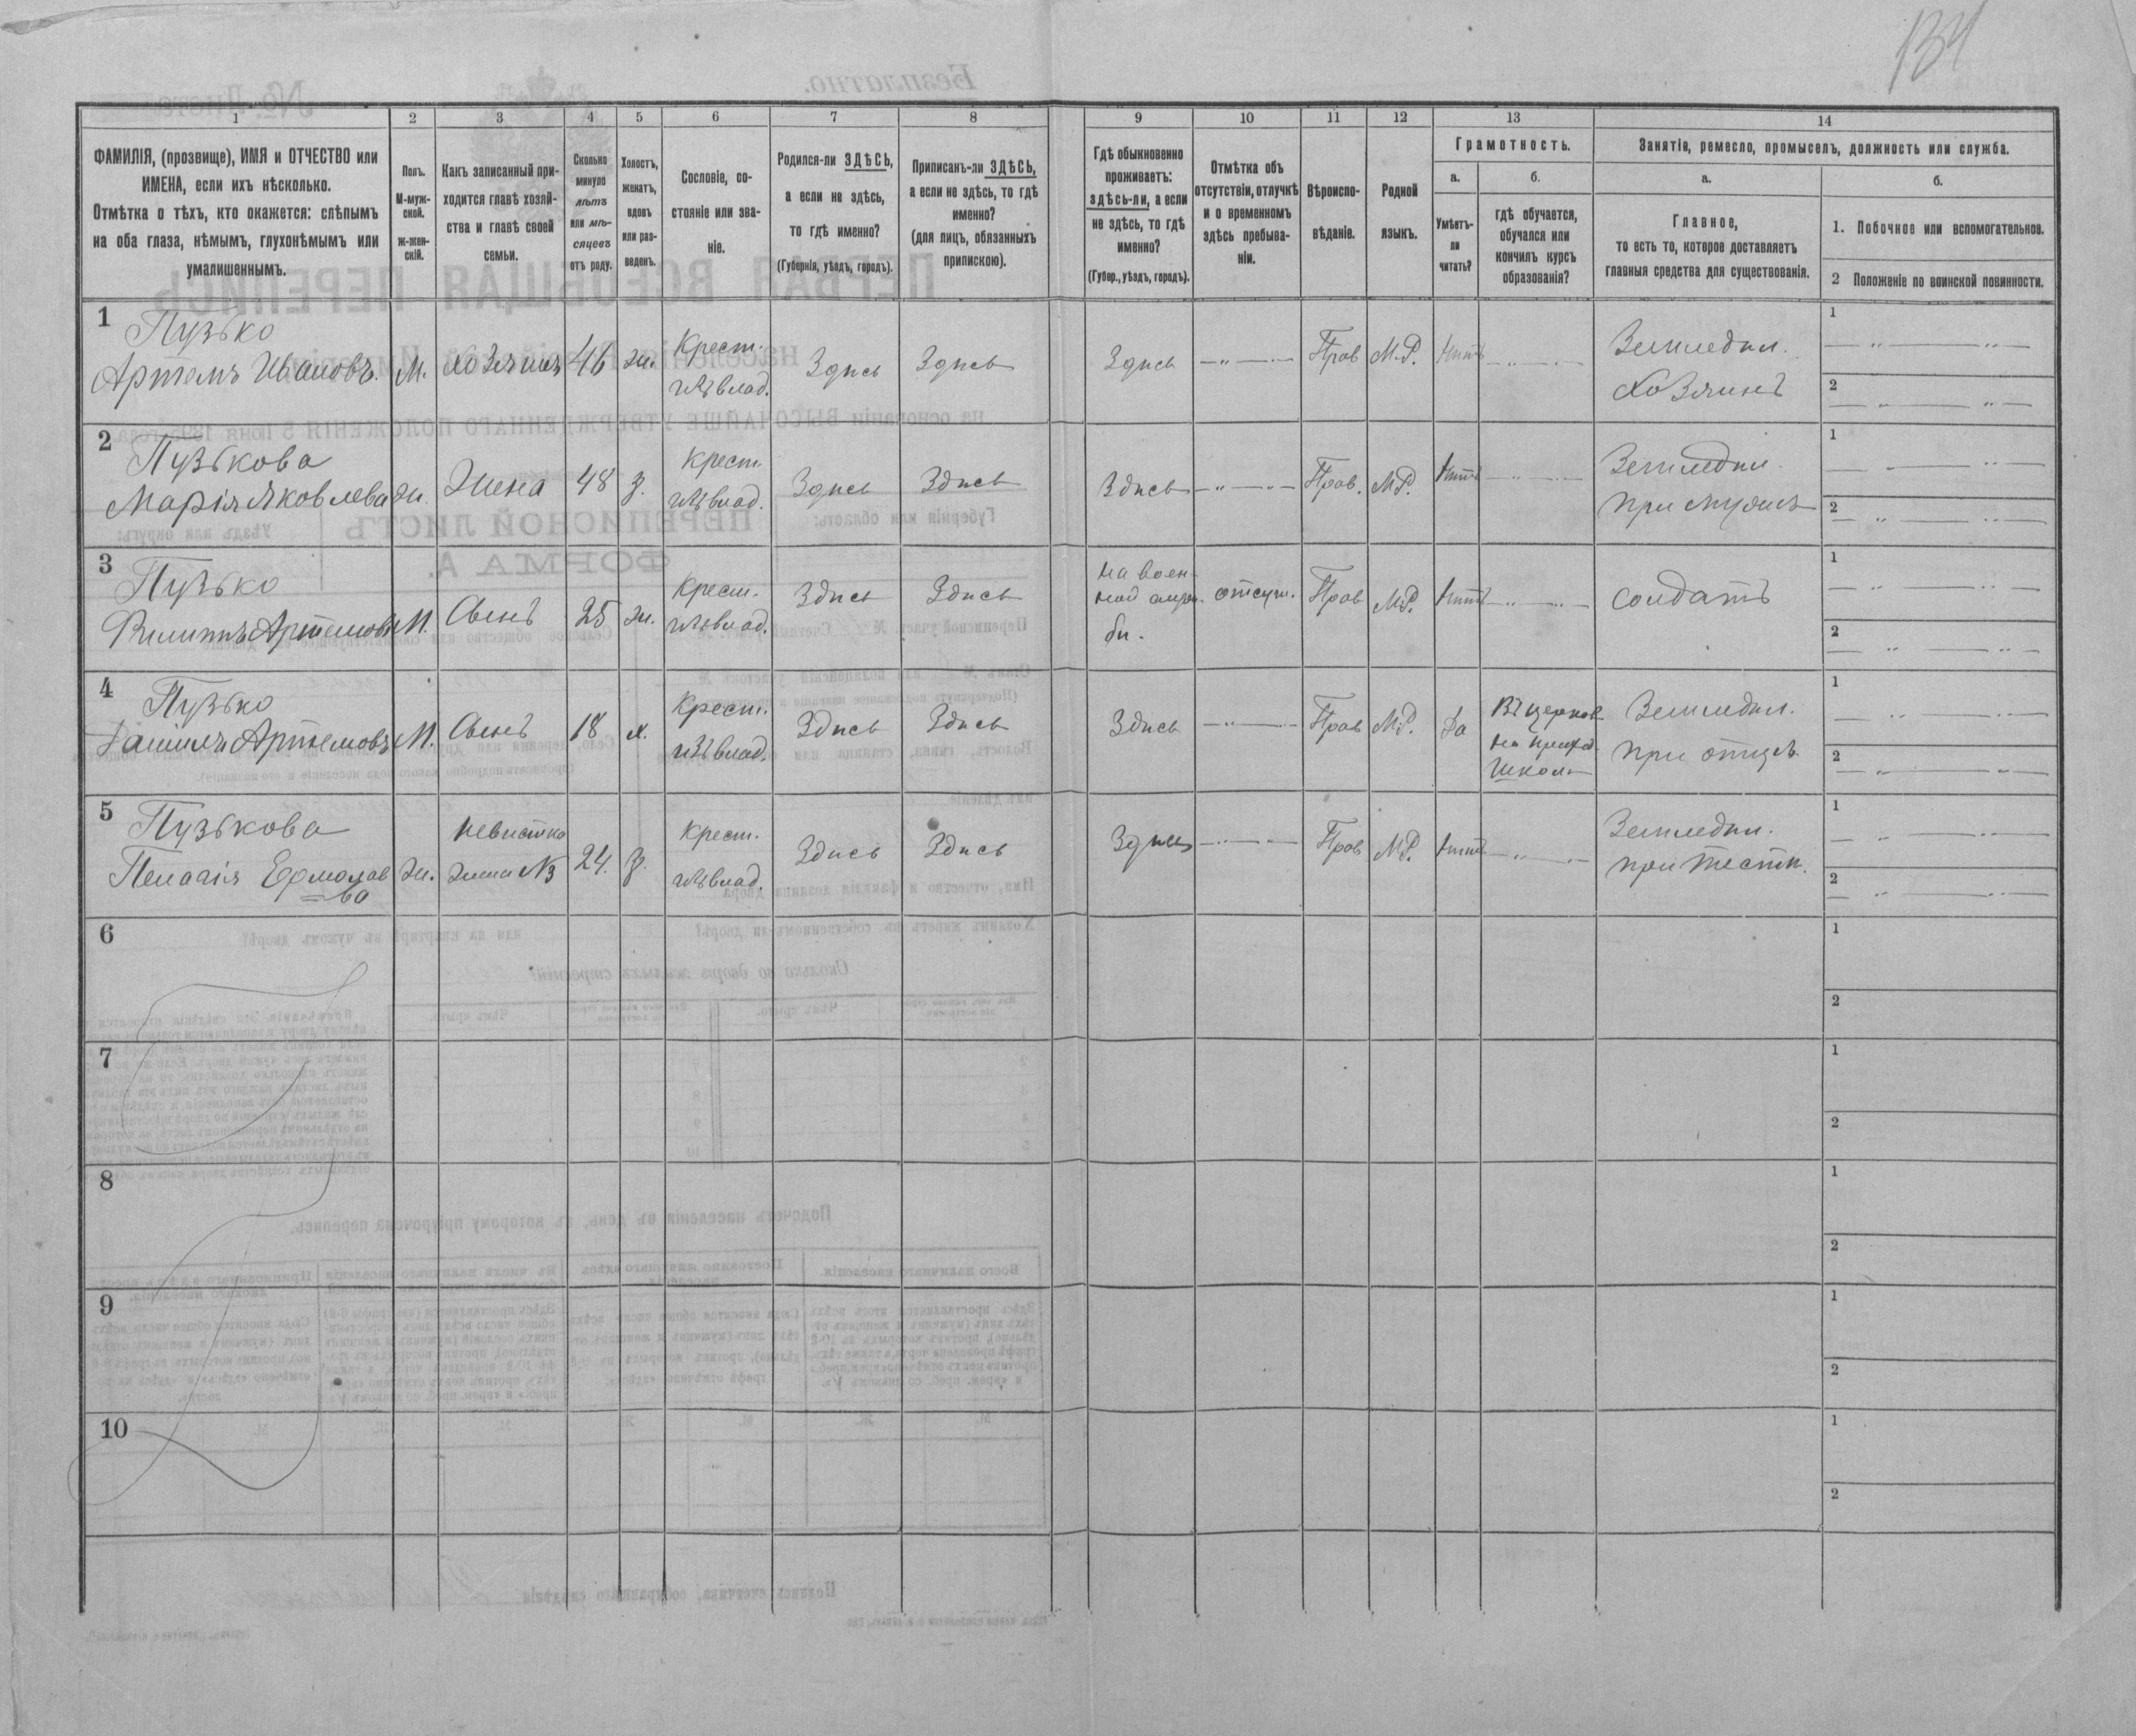 134
1
2
3
4
5
6
7
8
9
10
11
12
13
14
ФАМИЛІЯ, (прозвище), ИМЯ и ОТЧЕСТВО или
ИМЕНА, если ихъ нѣсколько.
Отмѣтка о тѣхъ, кто окажется: слѣпымъ
на оба глаза, нѣмымъ, глухонѣмымъ или
умалишеннымъ.
Полъ.
М-муж-
ской.
ж-жен-
скій.
Какъ записанный при-
ходится главѣ хозяй-
ства и главѣ своей
семьи.
Сколько
минуло
лѣтъ
или мѣ-
сяцевъ
отъ роду.
Холостъ,
женатъ,
вдовъ
или раз-
веденъ.
Сословіе, со-
стояніе или зва-
ніе.
Родился-ли ЗДѢСЬ,
а если не здѣсь,
то гдѣ именно?
(Губернія, уѣздъ, городъ).
Приписанъ-ли ЗДѢСЬ,
а если не здѣсь, то гдѣ
именно?
(для лицъ, обязанныхъ
припискою).
Гдѣ обыкновенно
проживаетъ:
здѣсь-ли, а если
не здѣсь, то гдѣ
именно?
(Губер., уѣздъ, городъ).
Отмѣтка объ
отсутствіи, отлучкѣ
и о временномъ
здѣсь пребыва-
ніи.
Вѣроиспо-
вѣданіе.
Родной
языкъ.
Грамотность.
а.
Умѣетъ-
ли
читать?
б.
гдѣ обучается,
обучался или
кончилъ курсъ
образованія?
Занятіе, ремесло, промыселъ, должность или служба.
а.
Главное,
то есть то, которое доставляетъ
главныя средства для существованія.
б.
1. Побочное или вспомогательное.
2 Положеніе по воинской повинности.
1
Пузько
Артемъ Ивановъ.
М.
Хозяинъ
46
ж.
Крест.
изъ влад.
Здѣсь
Здѣсь
Здѣсь
Прав
М.Р.
Нѣтъ
Земледѣл.
Хозяинъ
1
2
2
Пузькова
Марія Яковлева
ж.
Жена
48
з.
Крест.
изъ влад.
Здѣсь
Здѣсь
Здѣсь
Прав.
М.Р.
Нѣтъ
Земледѣл.
при мужѣ
1
2
3
Пузько
Филиппъ Артемовъ
М.
Сынъ
25
ж.
Крест.
изъ влад.
Здѣсь
Здѣсь
На воен-
ной служ-
бѣ.
отсут.
Прав
М.Р.
Нѣтъ
солдатъ
1
2
4
Пузько
Даніилъ Артемовъ
М.
Сынъ
18
х.
Крест.
изъ влад.
Здѣсь
Здѣсь
Здѣсь
Прав
М.Р.
Да
Въ церков
но приход.
школѣ
Земледѣл.
при отцѣ
1
2
5
Пузькова
Пелагія Ермолае
ва
ж.
Невѣстка
жена №3
24.
з.
Крест.
изъ влад.
Здѣсь
Здѣсь
Здѣсь
Прав
М.Р.
Нѣтъ
Земледѣл.
при тестѣ.
1
2
6
1
2
7
1
2
8
1
2
9
1
2
10
1
2